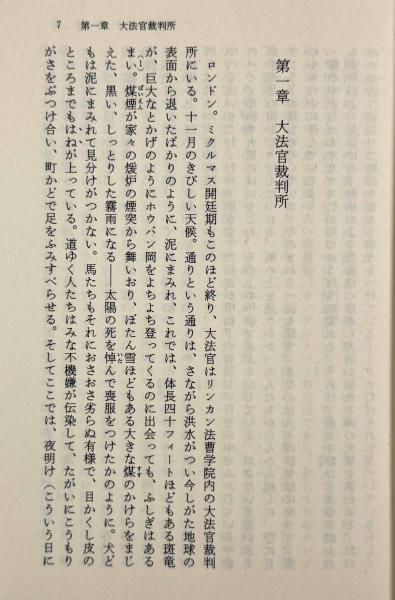 7 第一章 大法官裁判所
第一章 大法官裁判所
ロンドン。ミクルマス開廷期もこのほど終り、大法官はリンカン法曹学院内の大法官裁判
所にいる。十一月のきびしい天候。通りという通りは、さながら洪水がつい今しがた地球の
表面から退いたばかりのように、泥にまみれ、これでは、体長四十フィートほどもある斑竜
が、巨大なとかげのようにホウバン岡をよちよち登ってくるのに出会っても、ふしぎはある
まい。煤煙が家々の煖炉の煙突から舞いおり、ぼたん雪ほどもある大きな煤のかけらをまじ
えた、黒い、しっとりした霧雨になる――太陽の死を悼んで喪服をつけたかのように。犬ど
もは泥にまみれて見分けがつかない。馬たちもそれにおさおさ劣らぬ有様で、目かくし皮の
ところまでもはねが上っている。道ゆく人たちはみな不機嫌が伝染して、たがいにこうもり
がさをぶつけ合い、町かどで足をふみすべらせる。そしてここでは、夜明け(こういう日に